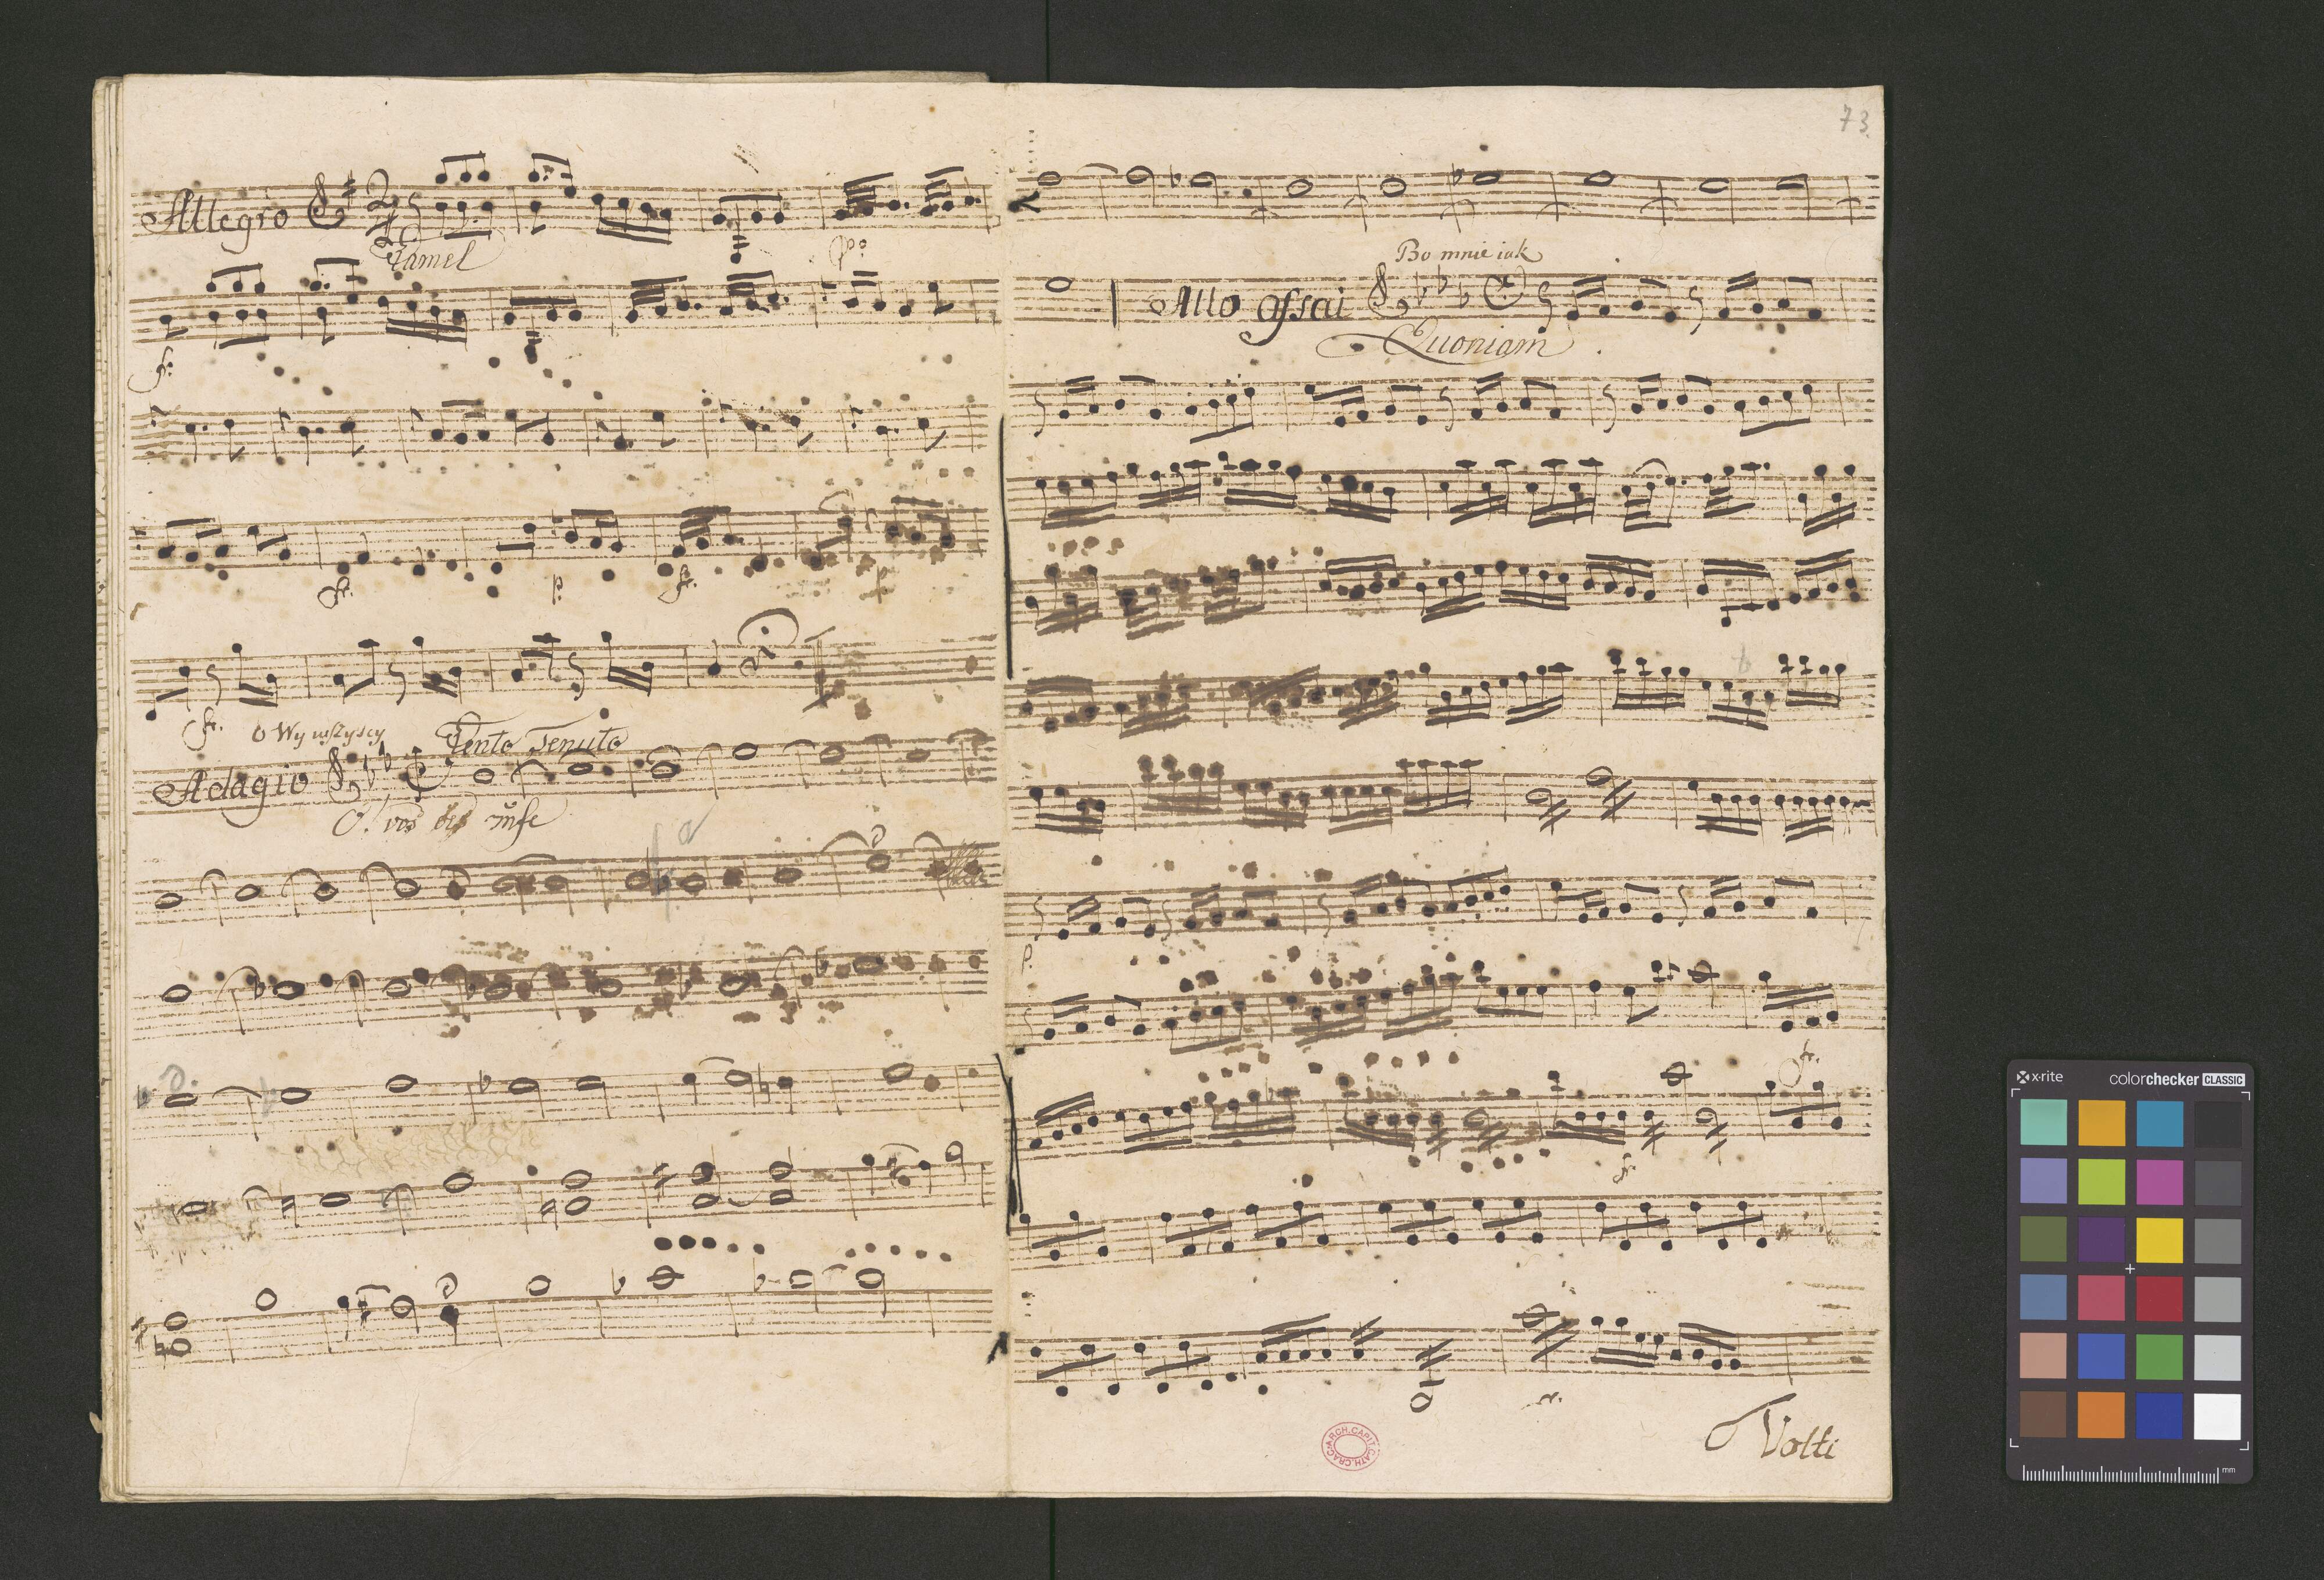 Allegro
Tamel
p:o
f:
f:
p:
f:
p
f:
O Wy wszyscy
Lento Tenuto
Adagio
O! vos
73
Bo mnie iak
Allo assai
Quoniam
p.
f.
fr.
Volti
ARCH. CAPIT. CATH. CRAC.
x-rite
colorchecker CLASSIC
mm